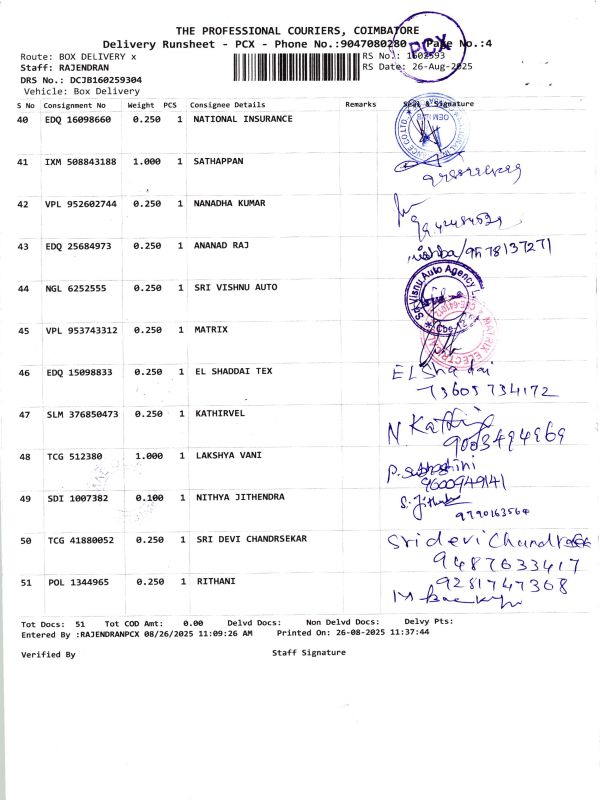 THE PROFESSIONAL COURIERS, COIMBATORE
Delivery Runsheet - PCX - Phone No.:9047080280 Page No.:4
PCX
Route: BOX DELIVERY x RS No.: 1602593
Staff: RAJENDRAN RS Date: 26-Aug-2025
DRS No.: DCJB160259304
Vehicle: Box Delivery
S No Consignment No Weight PCS Consignee Details Remarks Seal & Signature
40 EDQ 16098660 0.250 1 NATIONAL INSURANCE
41 IXM 508843188 1.000 1 SATHAPPAN
42 VPL 952602744 0.250 1 NANADHA KUMAR
43 EDQ 25684973 0.250 1 ANANAD RAJ /9578137271
44 NGL 6252555 0.250 1 SRI VISHNU AUTO
Sri Visnu Auto Agency
45 VPL 953743312 0.250 1 MATRIX
46 EDQ 15098833 0.250 1 EL SHADDAI TEX EL Shadai
73605734172
47 SLM 376850473 0.250 1 KATHIRVEL N. Kathir
9003494969
48 TCG 512380 1.000 1 LAKSHYA VANI P. Subhashini
9600949141
49 SDI 1007382 0.100 1 NITHYA JITHENDRA S. Jithendra
9790163564
50 TCG 41880052 0.250 1 SRI DEVI CHANDRSEKAR Sridevi
9487633417
51 POL 1344965 0.250 1 RITHANI 9281747368
Tot Docs: 51 Tot COD Amt: 0.00 Delvd Docs: Non Delvd Docs: Delvy Pts:
Entered By :RAJENDRANPCX 08/26/2025 11:09:26 AM Printed On: 26-08-2025 11:37:44
Verified By Staff Signature